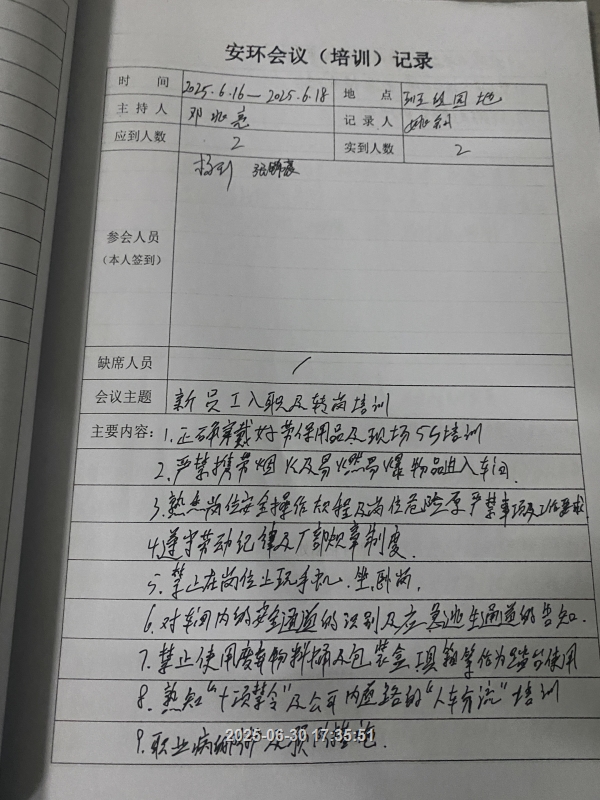 安环会议（培训）记录
时 间 2025.6.16—2025.6.18 地 点 班组园地
主 持 人 邓 亮 记 录 人
应到人数 2 实到人数 2
参会人员
（本人签到）
缺席人员 /
会议主题 新员工入职及转岗培训
主要内容：1.正确穿戴好劳保用品及现场5S培训
2.严禁携带烟火以及易燃易爆物品进入车间.
3.熟悉岗位安全操作规程及岗位危险源严禁事项及工作要求
4.遵守劳动纪律及厂部规章制度.
5.禁止在岗位上玩手机.坐卧岗.
6.对车间内的安全通道的识别及应急逃生通道的告知.
7.禁止使用废弃物料桶及包装盒工具箱等作为 使用
8.熟知“十项禁令”及公司内道路的“人车分流”培训
9.职业病 及预防
2025-06-30 17:35:51